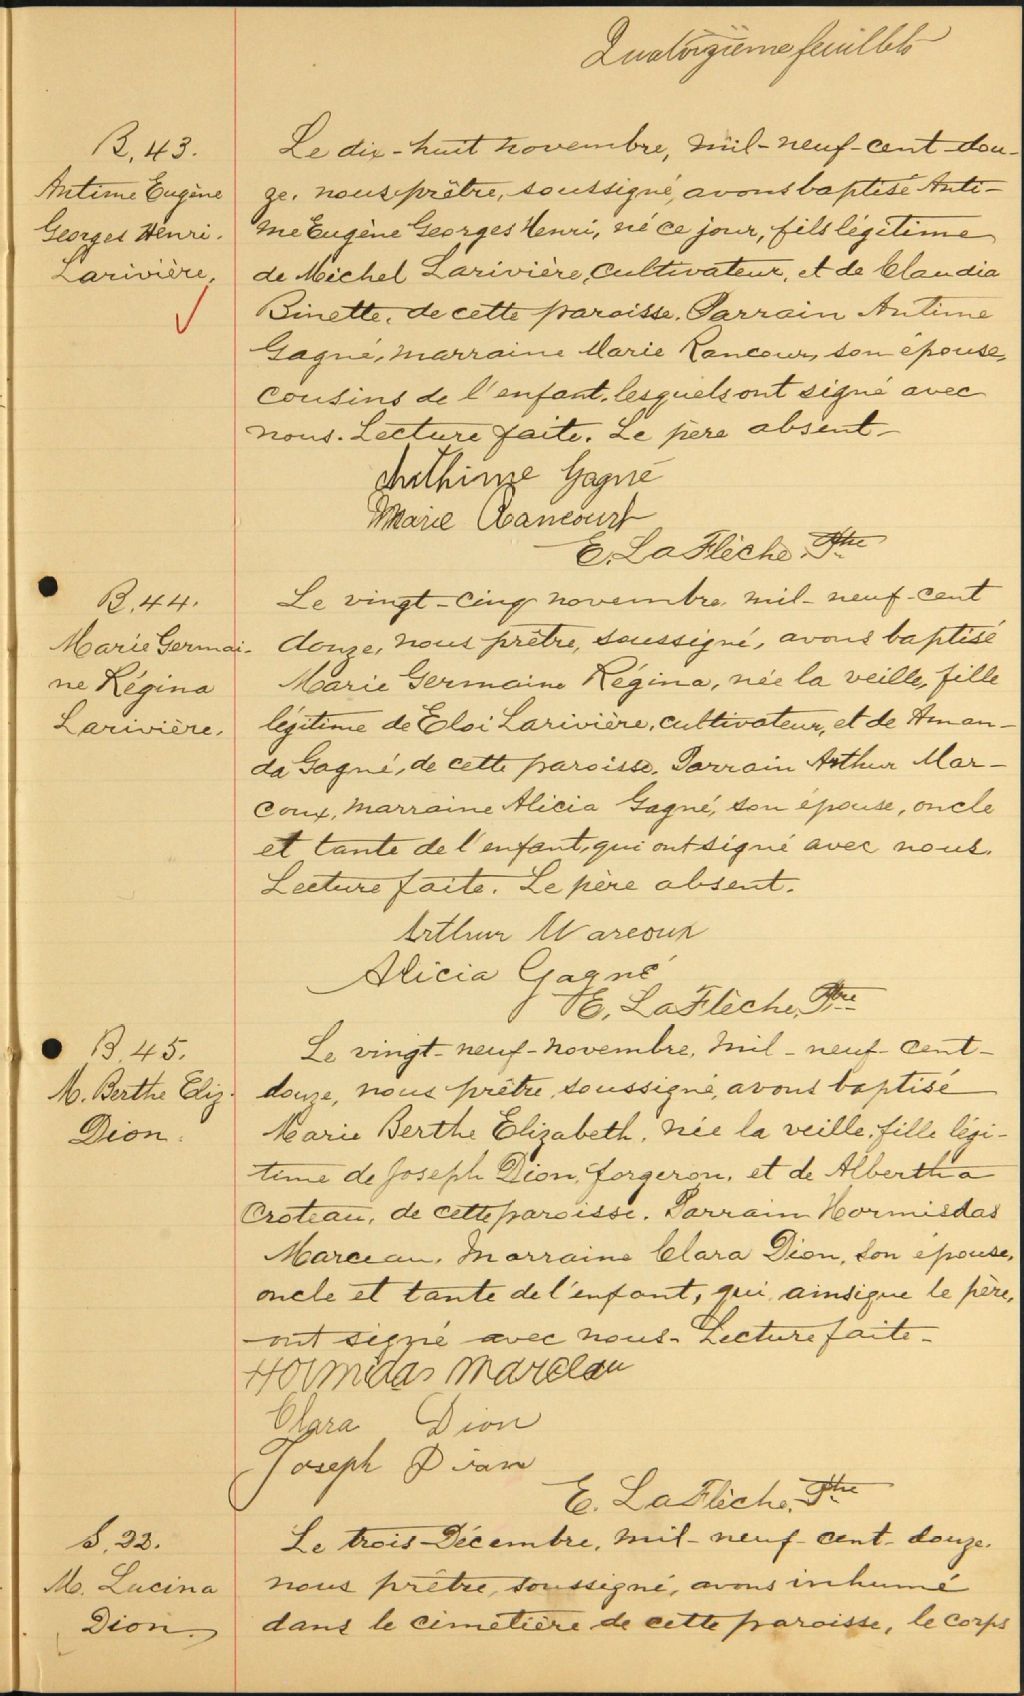 Quatorzième feuillets
B. 43.
Antime Eugène
Georges Henri.
Larivière.
Le dix-huit novembre, mil-neuf-cent-dou-
ze, nous prêtre, soussigné, avons baptisé Anti-
me Eugène Georges Henri, né ce jour, fils légitime
de Michel Larivière, cultivateur, et de Claudia
Binette, de cette paroisse. Parrain Antime
Gagné, marraine Marie Rancour, son épouse,
cousins de l'enfant, lesquels ont signé avec
nous. Lecture faite. Le père absent-
Anthime Gagné
Marie Rancourt
E. LaFlèche. Ptre
B. 44.
Marie Germai-
ne Régina
Larivière.
Le vingt-cinq novembre, mil-neuf-cent
douze, nous prêtre, soussigné, avons baptisé
Marie Germaine Régina, née la veille, fille
légitime de Eloi Larivière, cultivateur, et de Aman-
da Gagné, de cette paroisse. Parrain Arthur Mar-
coux, marraine Alicia Gagné, son épouse, oncle
et tante de l'enfant, qui ont signé avec nous.
Lecture faite. Le père absent.
Arthur Marcoux
Alicia Gagné
E. LaFlèche, Ptre
B. 45.
M. Berthe Eliz.
Dion.
Le vingt-neuf-novembre, mil-neuf-cent-
douze, nous prêtre, soussigné, avons baptisé
Marie Berthe Elizabeth, née la veille, fille légi-
time de Joseph Dion, forgeron, et de Albertha
Croteau, de cette paroisse. Parrain Hormisdas
Marceau, Marraine Clara Dion, son épouse,
oncle et tante de l'enfant, qui, ainsi que le père,
ont signé avec nous- Lecture faite-
Hormidas Marceau
Clara Dion
Joseph Dion
E. LaFlèche, Ptre
S. 22.
M. Lucina
Dion.
Le trois Décembre, mil-neuf-cent-douze,
nous prêtre, soussigné, avons inhumé
dans le cimetière de cette paroisse, le corps